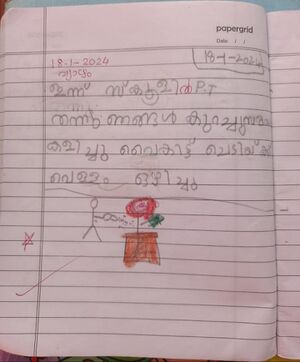 papergrid
Date: / /
18-1-2024
18-1-2024
വ്യാഴം
ഇന്ന് സ്കൂളിൽ P.T
ഞങ്ങൾ കുറച്ചു
കളിച്ചു വൈകിട്ട് ചെടിയ്ക്ക്
വെള്ളം ഒഴിച്ചു